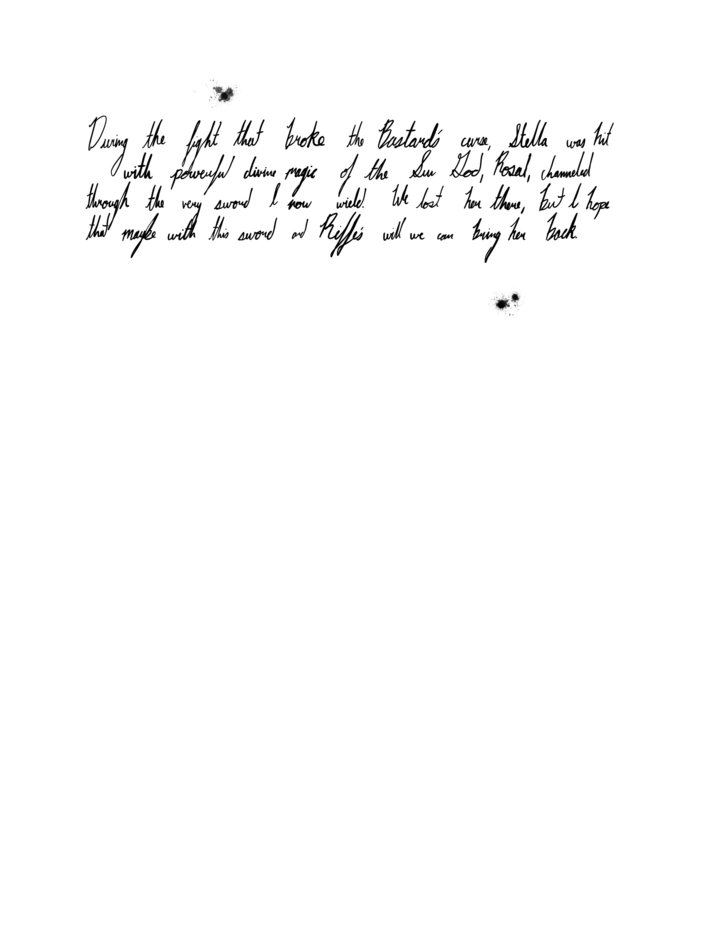 During the fight that broke the Bastard's curse, Stella was hit
with powerful divine magic of the Sun God, Rosal, channeled
through the very sword I now wield. We lost her there, but I hope
that maybe with this sword and Riffe's will we can bring her back.